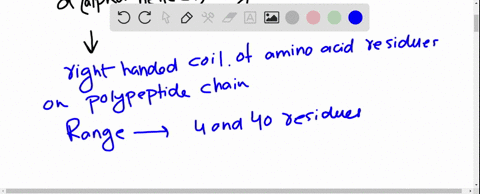 right handed coil of amino acid residues
on polypeptide chain
Range → 4 and 40 residues